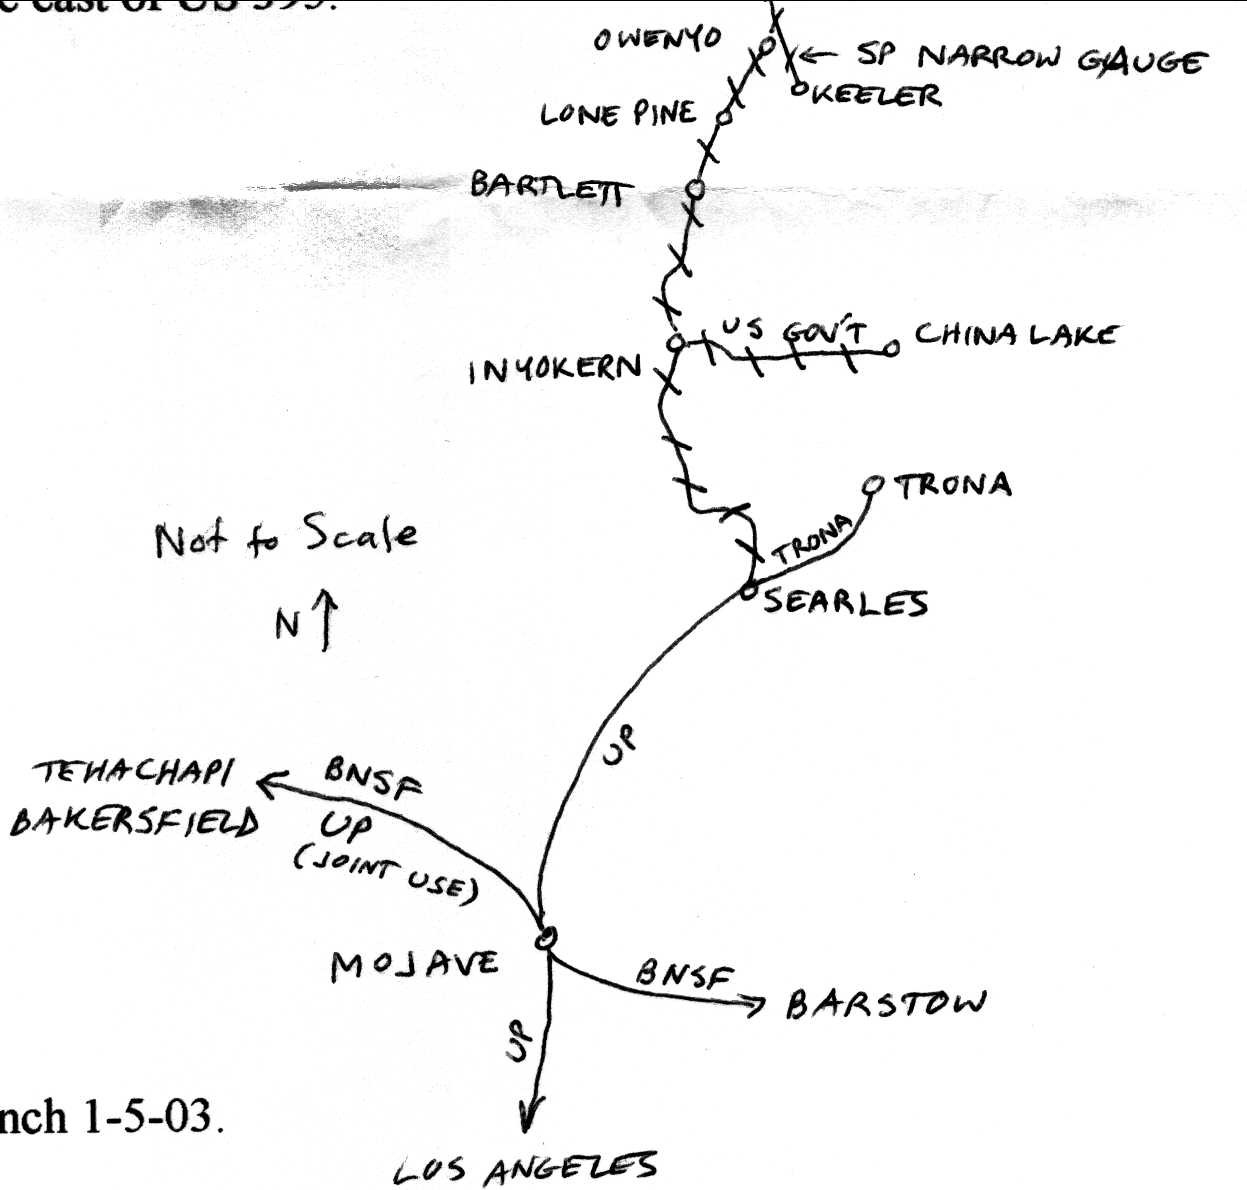 e east of US 395.
OWENYO
← SP NARROW GAUGE
KEELER
LONE PINE
BARTLETT
US GOV'T
CHINA LAKE
INYOKERN
TRONA
TRONA
SEARLES
Not to Scale
N↑
UP
TEHACHAPI
BAKERSFIELD
BNSF
UP
(JOINT USE)
MOJAVE
BNSF
BARSTOW
UP
nch 1-5-03.
LOS ANGELES